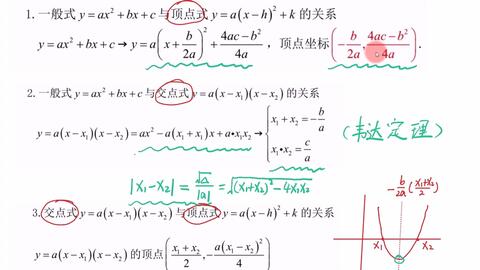 1. 一般式 y=ax²+bx+c 与顶点式 y=a(x-h)²+k 的关系
y=ax²+bx+c→y=a(x+b/2a)²+(4ac-b²)/4a，顶点坐标(-b/2a, (4ac-b²)/4a).
2. 一般式 y=ax²+bx+c 与交点式 y=a(x-x₁)(x-x₂) 的关系
y=a(x-x₁)(x-x₂)=ax²-a(x₁+x₂)x+a•x₁x₂→{x₁+x₂=-b/a
x₁•x₂=c/a
(韦达定理)
|x₁-x₂|=√Δ/|a|=√(x₁+x₂)²-4x₁x₂
-b/2a (x₁+x₂/2)
3.交点式 y=a(x-x₁)(x-x₂) 与顶点式 y=a(x-h)²+k 的关系
x₁ x₂
y=a(x-x₁)(x-x₂) 的顶点((x₁+x₂)/2, -a(x₁-x₂)²/4)